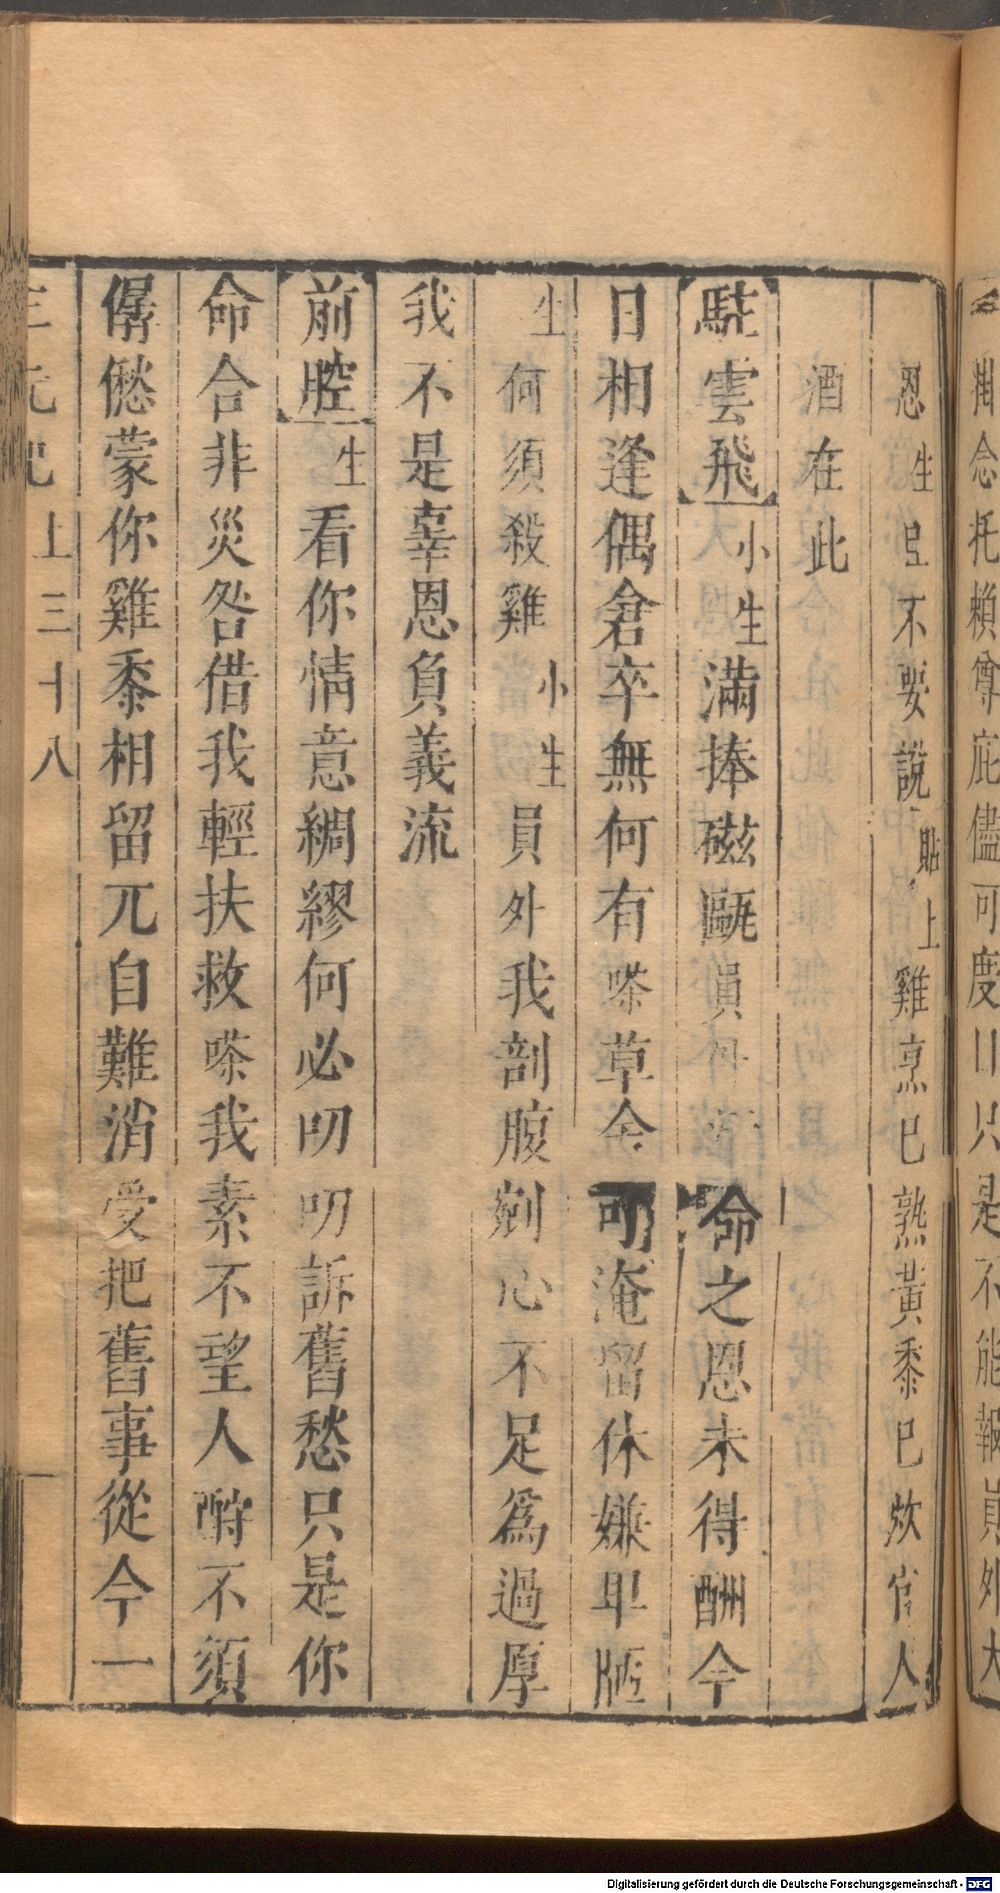 掛念托賴尊庇儘可度日只是不能報員外大
恩生旦不要說貼上雞烹已熟黃黍已炊官人
酒在此
駐雲飛小生滿捧磁甌員外 命之恩未得酬今
日相逢偶倉卒無何有嗏草舍可淹留休嫌卑陋
生何須殺雞小生員外我剖腹剜心不足為過厚
我不是辜恩負義流
前腔生看你情意綢繆何必叨叨訴舊愁只是你
命合非災咎借我輕扶救嗏我素不望人酧不須
僝僽蒙你雞黍相留兀自難消受把舊事從今一
三元記 上 三十八
Digitalisierung gefördert durch die Deutsche Forschungsgemeinschaft - DFG